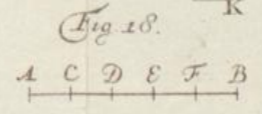 K
Fig 18.
A C D E F B